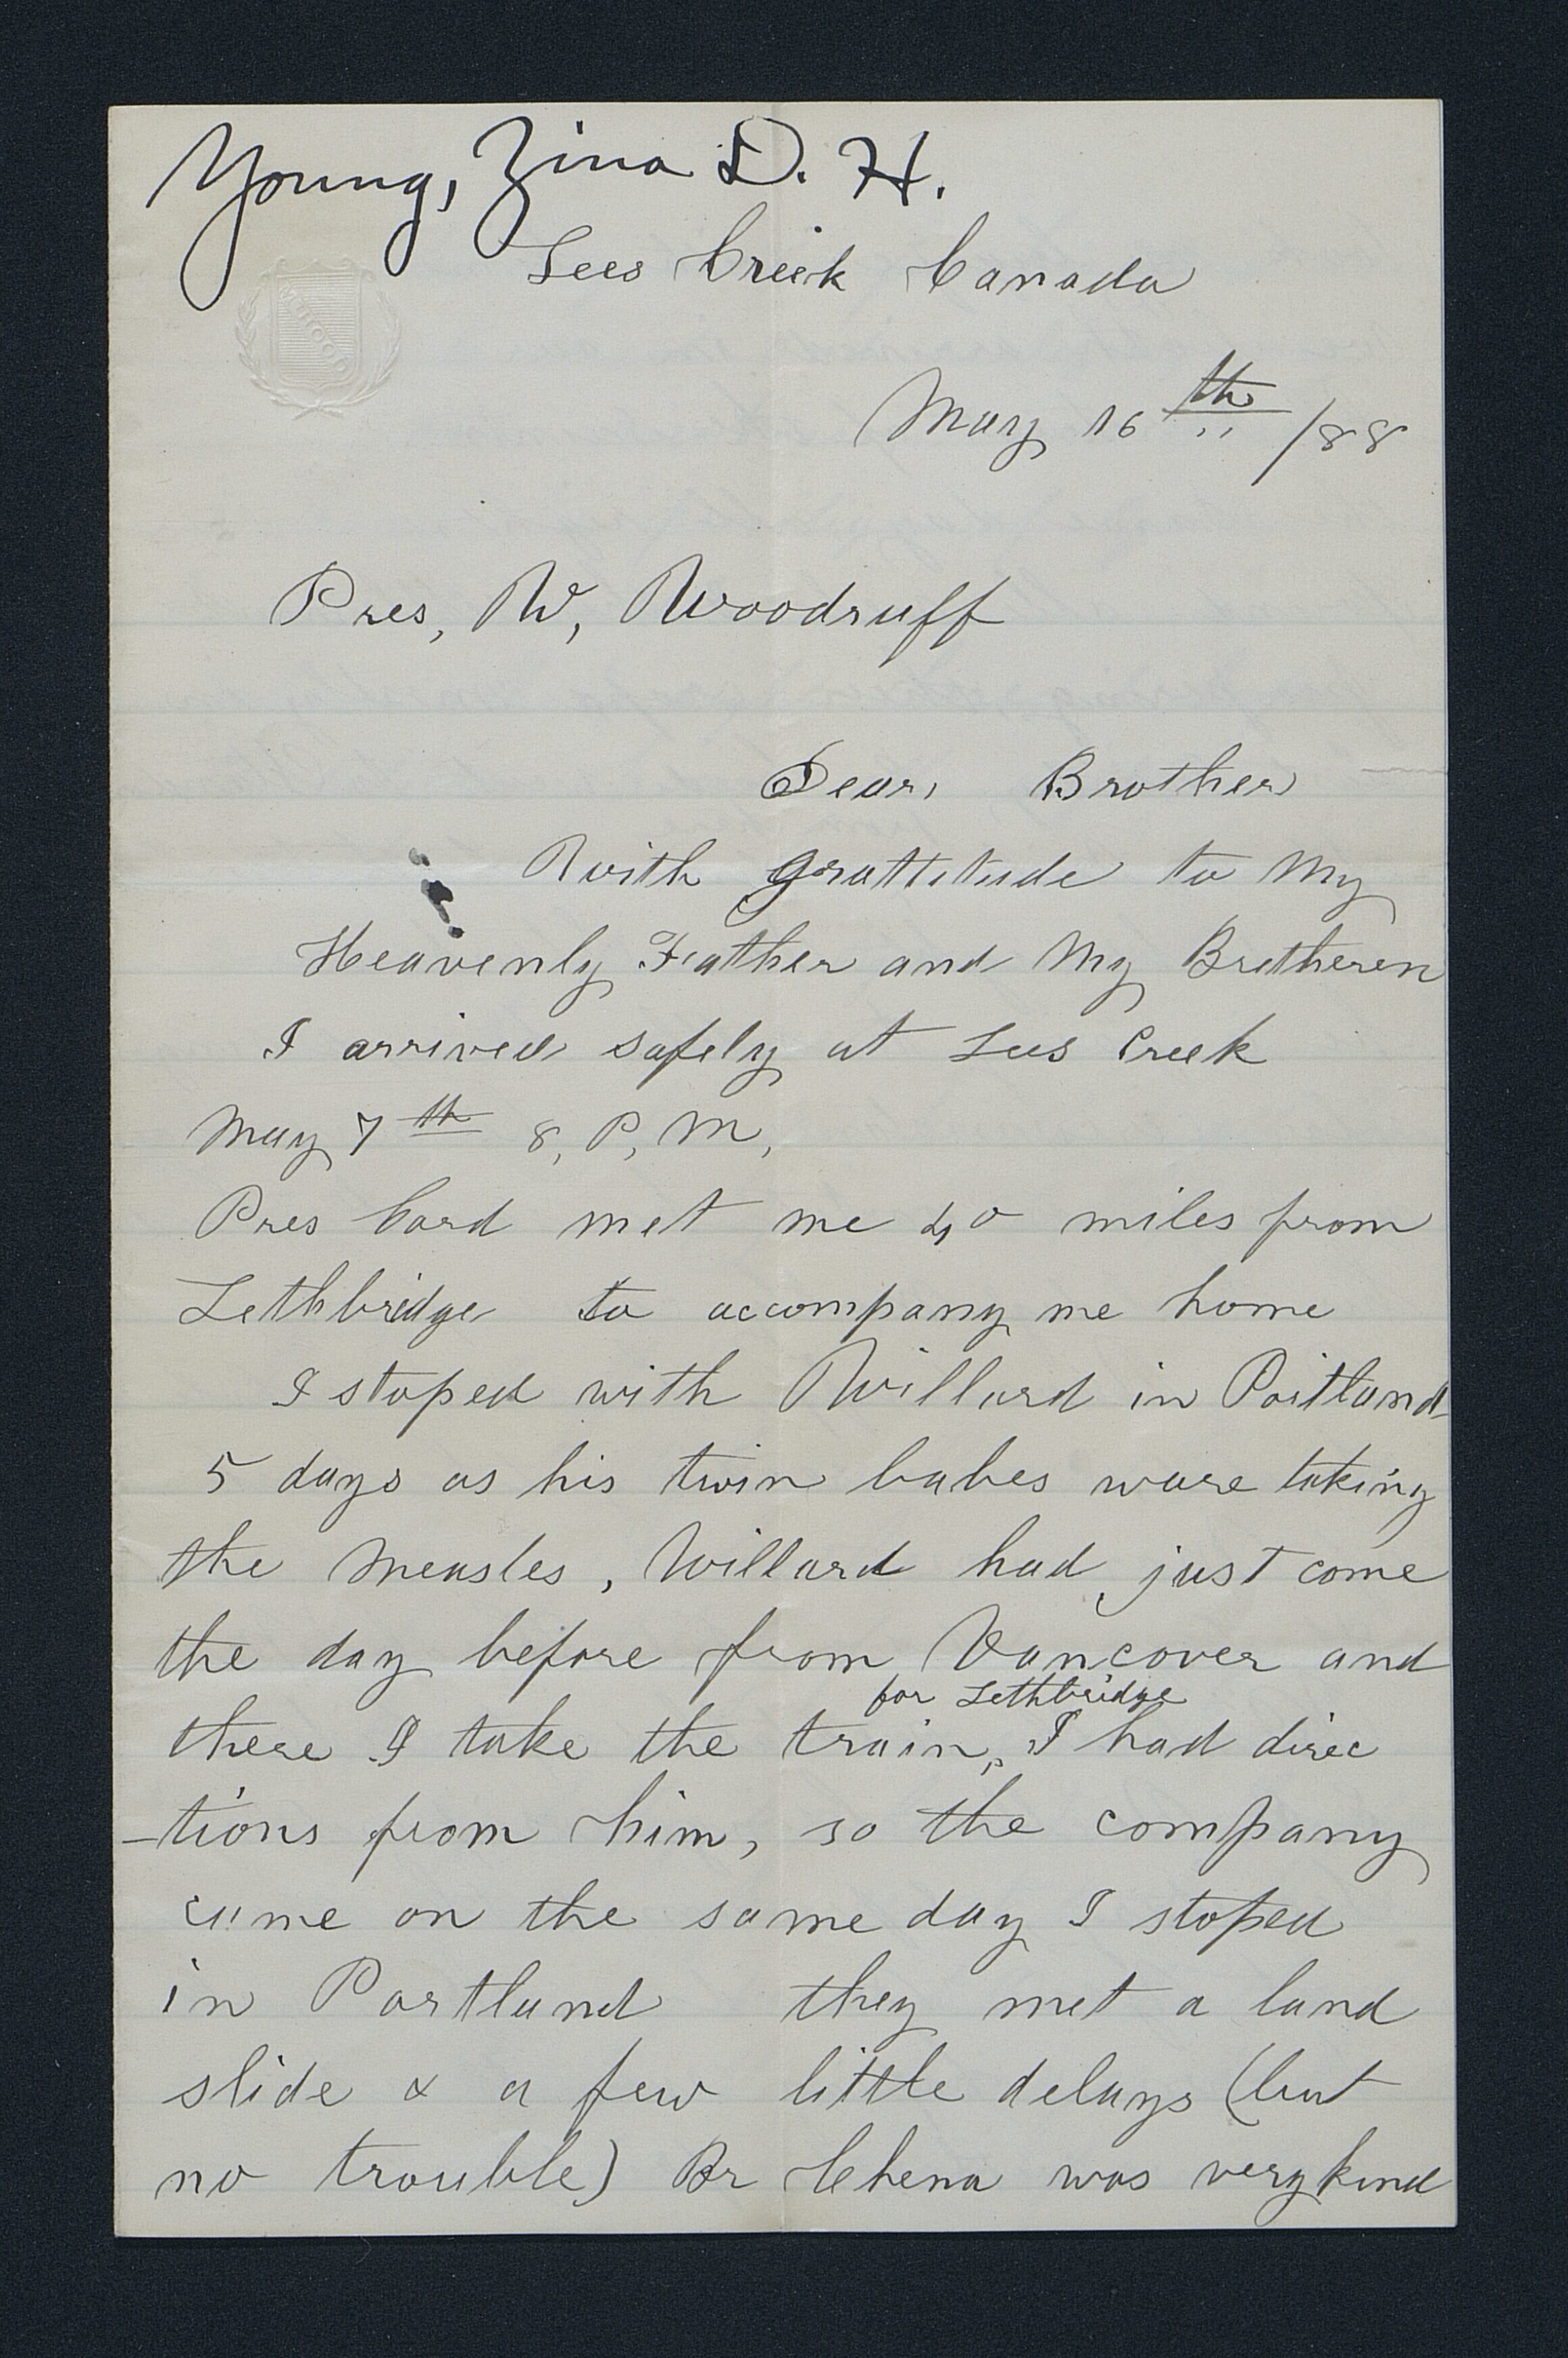 Young, Zina D. H.
Lees Creek Canada
May 16th /88
Pres, W, Woodruff
Dear, Brother
With grattitude to My
Heavenly Father and My Bretheren
I arrived safely at Lees Creek
May 7th 8, P, M,
Pres Card met me 40 miles from
Lethbridge to accompany me home
I stoped with Willard in Portland
5 days as his twin babes ware taking
the Measles, Willard had just come
the day before from Vancover and
for Lethbridge
there I take the train, I had direc
-tions from him, so the company
came on the same day I stoped
in Portland they met a land
slide & a few little delays (but
no trouble) Br was very kind